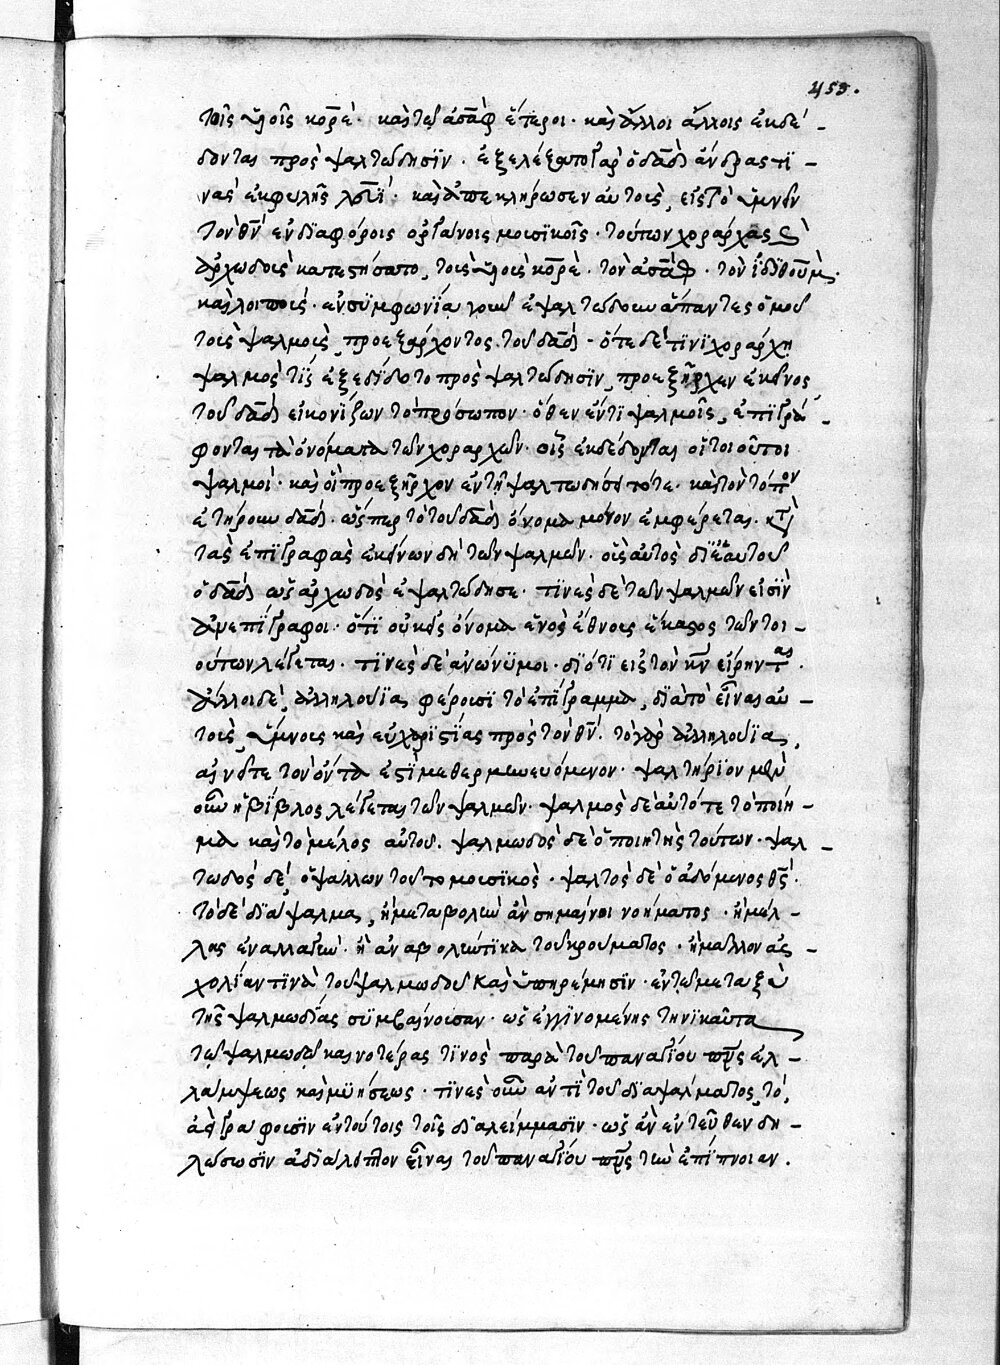 453.
τοῖς υἱοῖς κορὲ· καὶ τῷ ἀσὰφ ἕτεροι· καὶ ἄλλοι ἄλλοις ἐκδέ-
δονται πρὸς ψαλτῴδησϊν· ἐξελέξατο γὰρ ὁ δᾱδ ἄνδρας τϊ-
νὰς ἐκ φυλῆς λευῒ· καὶ ἀπεκλήρωσεν αὐτοὺς, εἰς τὸ ὑμνεῖν
τὸν θν̄ ἐν διαφόροις ὀργάνοις μουσϊκοῖς· τούτων χοράρχας καὶ
ἀρχῳδοὺς κατεστήσατο, τοὺς υἱοὺς κορὲ· τὸν ἀσὰφ· τὸν ἰδϊθοὺμ·
καὶ λοιποὺς· ἐν συμφωνίᾳ γοῦν ἐψαλτῴδουν ἅπαντες ὁμοῦ
τοὺς ψαλμοὺς, προεξάρχοντος τοῦ δᾱδ· ὅτε δέ τϊνϊ χοράρχῃ
ψαλμός τϊς ἐξεδίδοτο πρὸς ψαλτῴδησϊν, προεξῆρχεν ἐκεῖνος
τοῦ δᾱδ εἰκονίζων τὸ πρόσωπον· ὅθεν ἔν τϊσι ψαλμοῖς, ἐπϊγρά-
φονται τὰ ὀνόματα τῶν χοραρχῶν· οἷς ἐκδέδονται οἱ τοιοῦτοι
ψαλμοὶ· καὶ οἳ προεξῆρχον ἐν τῇ ψαλτῳδήσει τότε· καὶ τὸν τόπον
ἐτήρουν δᾱδ· ὥσπερ τὸ τοῦ δᾱδ ὄνομα μόνον ἐμφέρεται κατὰ
τὰς ἐπϊγραφὰς ἐκείνων δὴ τῶν ψαλμῶν· οὓς αὐτὸς δϊ' ἑαυτοῦ
ὁ δᾱδ ὡς ἀρχῳδὸς ἐψαλτῴδησε· τϊνὲς δὲ τῶν ψαλμῶν εἰσϊν
ἀνεπϊγραφοι· ὅτϊ οὐκ εἰς ὄνομα ἑνὸς ἔθνους ἕκαστος τῶν τοι-
ούτων λέγεται· τϊνὲς δὲ ἀνώνυμοι· δϊότϊ εἰς τὸν κν̄ εἴρηνται·
ἄλλοι δὲ, ἀλληλούϊα φέρουσϊ τὸ ἐπϊγραμμα, δϊὰ τὸ εἶναι αὐ-
τοὺς, ὕμνους καὶ εὐχαρϊστίας πρὸς τὸν θν̄· τὸ γὰρ ἀλληλούϊα,
αἰνεῖτε τὸν ὄντα ἐστὶ μεθερμηνευόμενον· ψαλτήριον μὲν
οὖν ἡ βίβλος λέγεται τῶν ψαλμῶν· ψαλμὸς δὲ αὐτό τε τὸ ποίη-
μα καὶ τὸ μέλος αὐτοῦ· ψαλμῳδὸς δὲ ὁ ποιητὴς τούτων· ψαλ-
τῳδὸς δὲ, ὁ ψάλλων τοῦτο μουσϊκὸς· ψαλτὸς δὲ ὁ ᾀδόμενος θς̄·
τὸ δὲ δϊάψαλμα, ἢ μεταβολὴν ἂν σημαίνοι νοήματος· ἢ μέλ-
λους ἐναλλαγὴν· ἢ ἀναβολεώτϊκα τοῦ κρούματος· ἢ μᾶλλον ἀσ-
χολίαν τϊνὰ τοῦ ψαλμῳδοῦ καὶ ὑπηρέμησϊν· ἐν τῷ μεταξὺ
τῆς ψαλμῳδίας συμβαίνουσαν· ὡς ἐγγϊνομένης τηνϊκαῦτα
τῷ ψαλμῳδῷ καινοτέρας τϊνὸς παρὰ τοῦ παναγίου πνς̄ ἐλ-
λάμψεως καὶ μυήσεως· τϊνὲς οὖν ἀντὶ τοῦ δϊαψάλματος, τὸ,
ἀεὶ γράφουσϊν ἐν τούτοις τοῖς δϊαλείμμασϊν· ὡς ἂν ἐντεῦθεν δη-
λώσωσϊν ἀδϊάλειπτον εἶναι τοῦ παναγίου πνς̄ τὴν ἐπίπνοιαν.